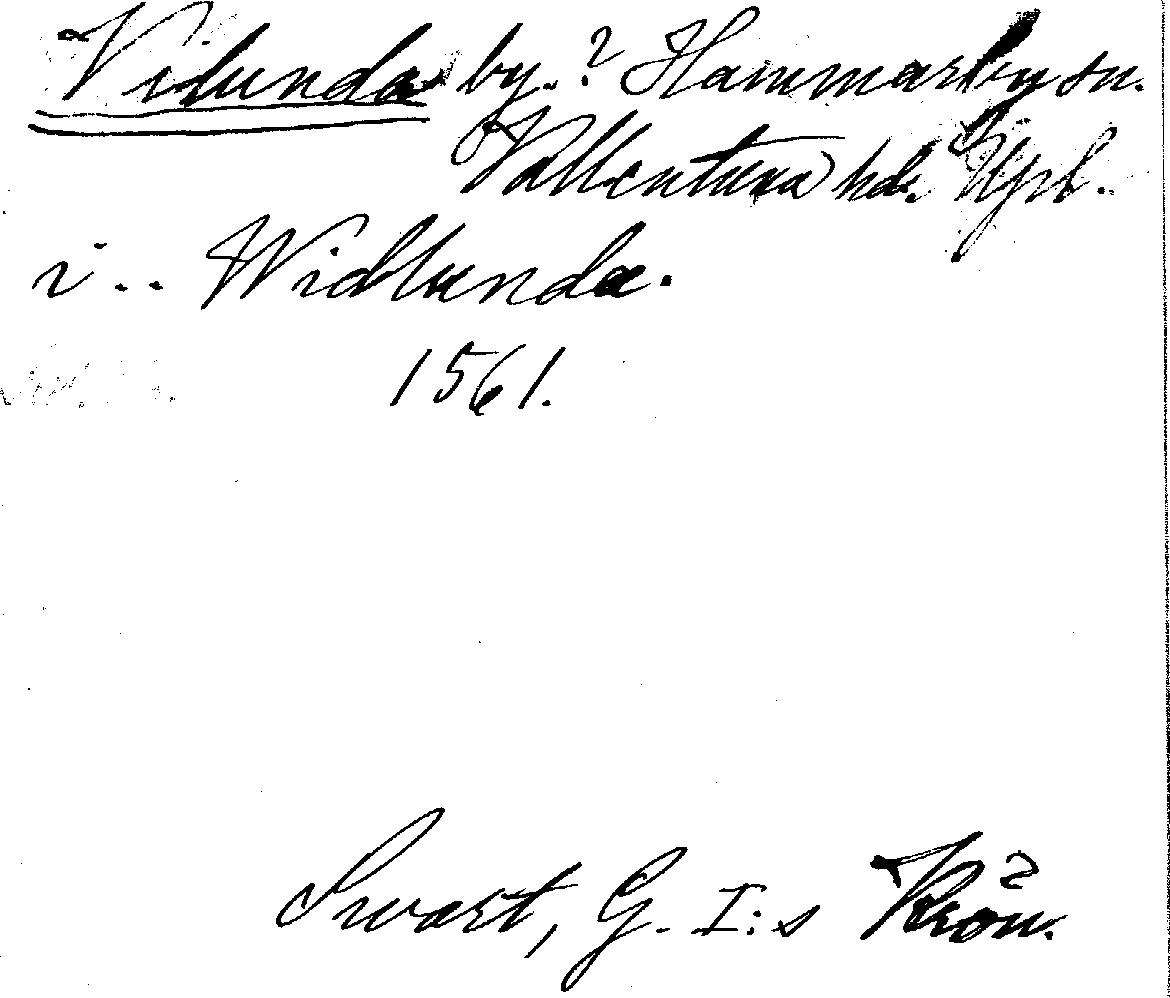 Vidunda by.? Hammarby sn.
Vallentuna hd. Upl.
i .. Widhunda.
1561.
Swart, G. I:s Krön.